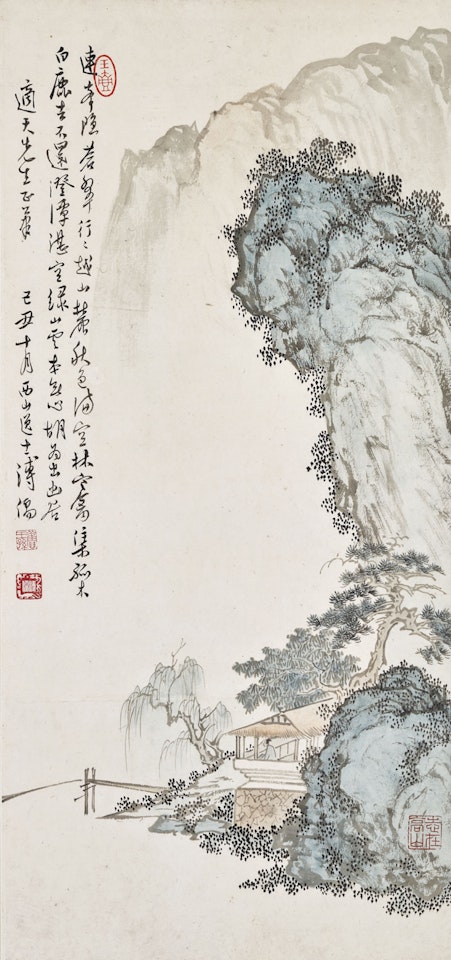 連峯隱蒼翠行〻越山麓秋色滿空林寒禽集孤木
白鹿去不還澄潭湛空綠山雲本無心胡為出幽谷
適天先生正 己丑十月西山逸士溥儒
玉壺
志在高山